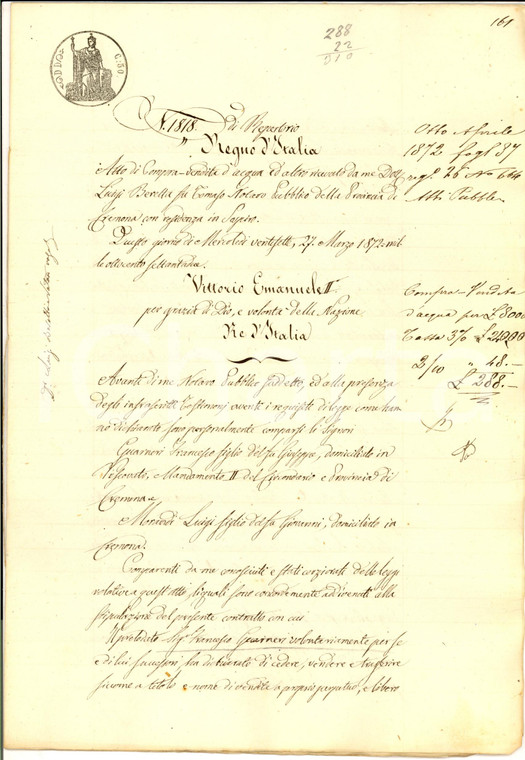 161
288
22
010
C. 50
N. 1818 di Repertorio
Regno d'Italia
Atto di Compra-vendita d'acqua ed altro ricevuto da me Dott.
Luigi Beretta fu Tomaso Notaro Pubblico della Provincia di
Cremona con residenza in
Questo giorno di Mercoledì ventisette 27. Marzo 1872. mil
le ottocento settantadue.
Vittorio Emanuele II
per grazia di Dio, e volontà della Nazione
Re d'Italia
Avanti di me Notaro Pubblico suddetto, ed alla presenza
degli infrascritti Testimonj aventi i requisiti di legge come han
no dichiarato sono personalmente comparsi li Signori
Guarneri Francesco figlio del fu Giuseppe, domiciliato in
Pescarolo, Mandamento II del Circondario e Provincia di
Cremona e
Luigi figlio del fu Giovanni, domiciliato in
Cremona.
Comparenti da me conosciuti e stati cerziorati delle leggi
relative a quest'atto li quali sono concordemente addivenuti alla
stipulazione del presente contratto con cui
Il prelodato Sig. Francesco Guarneri volontariamente per se
e di lui successori, ha dichiarato di cedere, vendere e trasferire
siccome a titolo e nome di vendita a proprio perpetuo, e libero
Otto Aprile
1872 fogl 87
reg° 26 N° 644
Atti Pubbl.
Compra-Vendita
d'acqua per £ 8000
Tassa 3% £ 240,00
2/10 " 48.—
£ 288.—